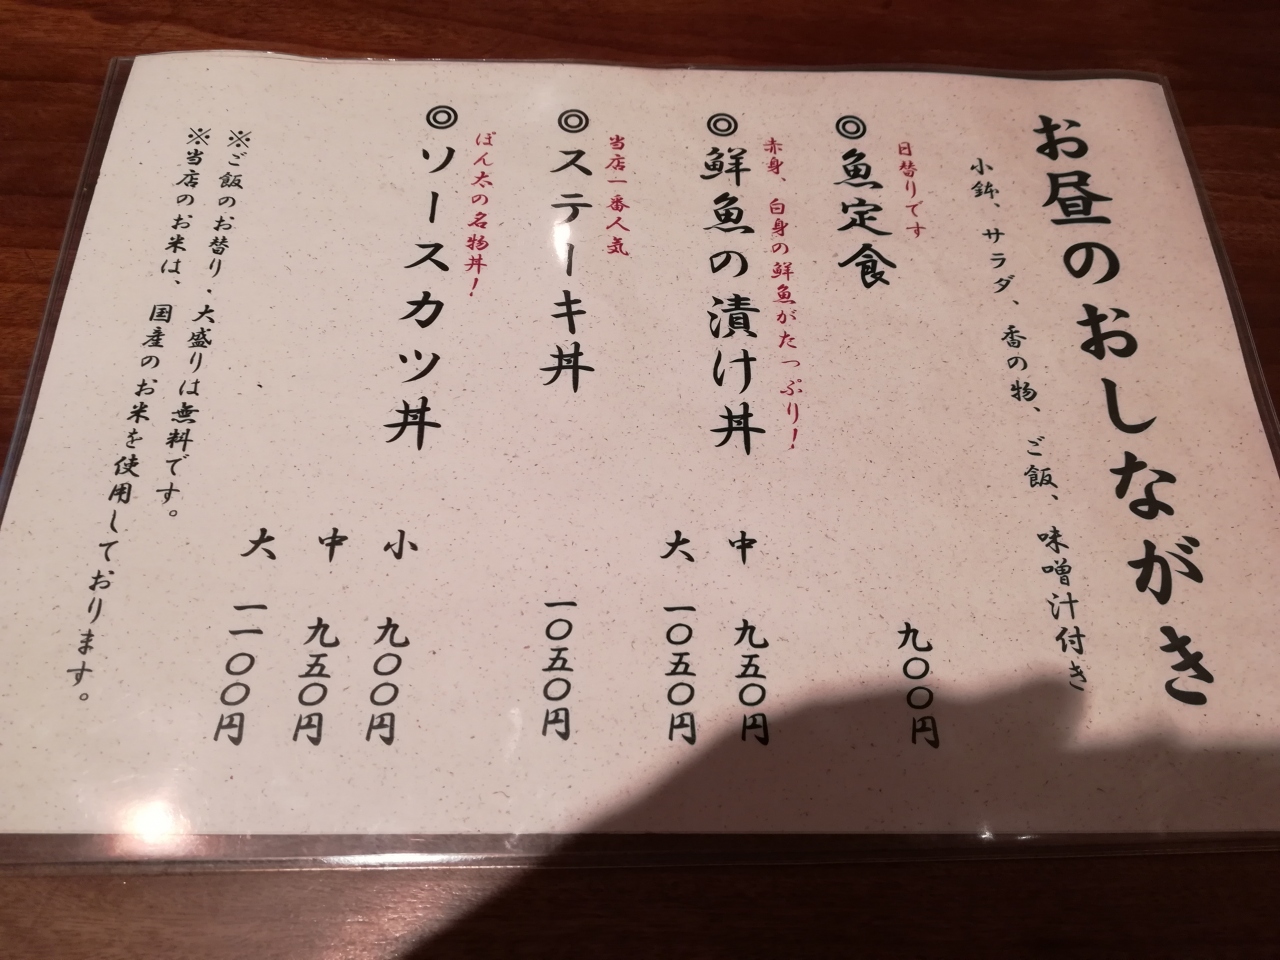 お昼のおしながき
小鉢、サラダ、香の物、ご飯、味噌汁付き
日替りです
◎魚定食 九〇〇円
赤身、白身の鮮魚がたっぷり！
◎鮮魚の漬け丼 中 九五〇円
大 一〇五〇円
当店一番人気
◎ステーキ丼 一〇五〇円
ぽん太の名物丼！
◎ソースカツ丼 小 九〇〇円
中 九五〇円
大 一一〇〇円
※ご飯のお替り、大盛りは無料です。
※当店のお米は、国産のお米を使用しております。